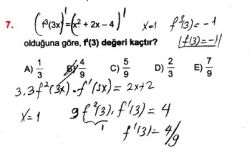 7. (f³(3x))' = (x² + 2x - 4)' x=1 f³(3) = -1
olduğuna göre, f'(3) değeri kaçtır? |f(3) = -1|
A) 1/3 B) 4/9 C) 5/9 D) 2/3 E) 7/9
3.3f²(3x).f'(3x) = 2x+2
x=1 9f²(3).f'(3) = 4
1
f'(3) = 4/9